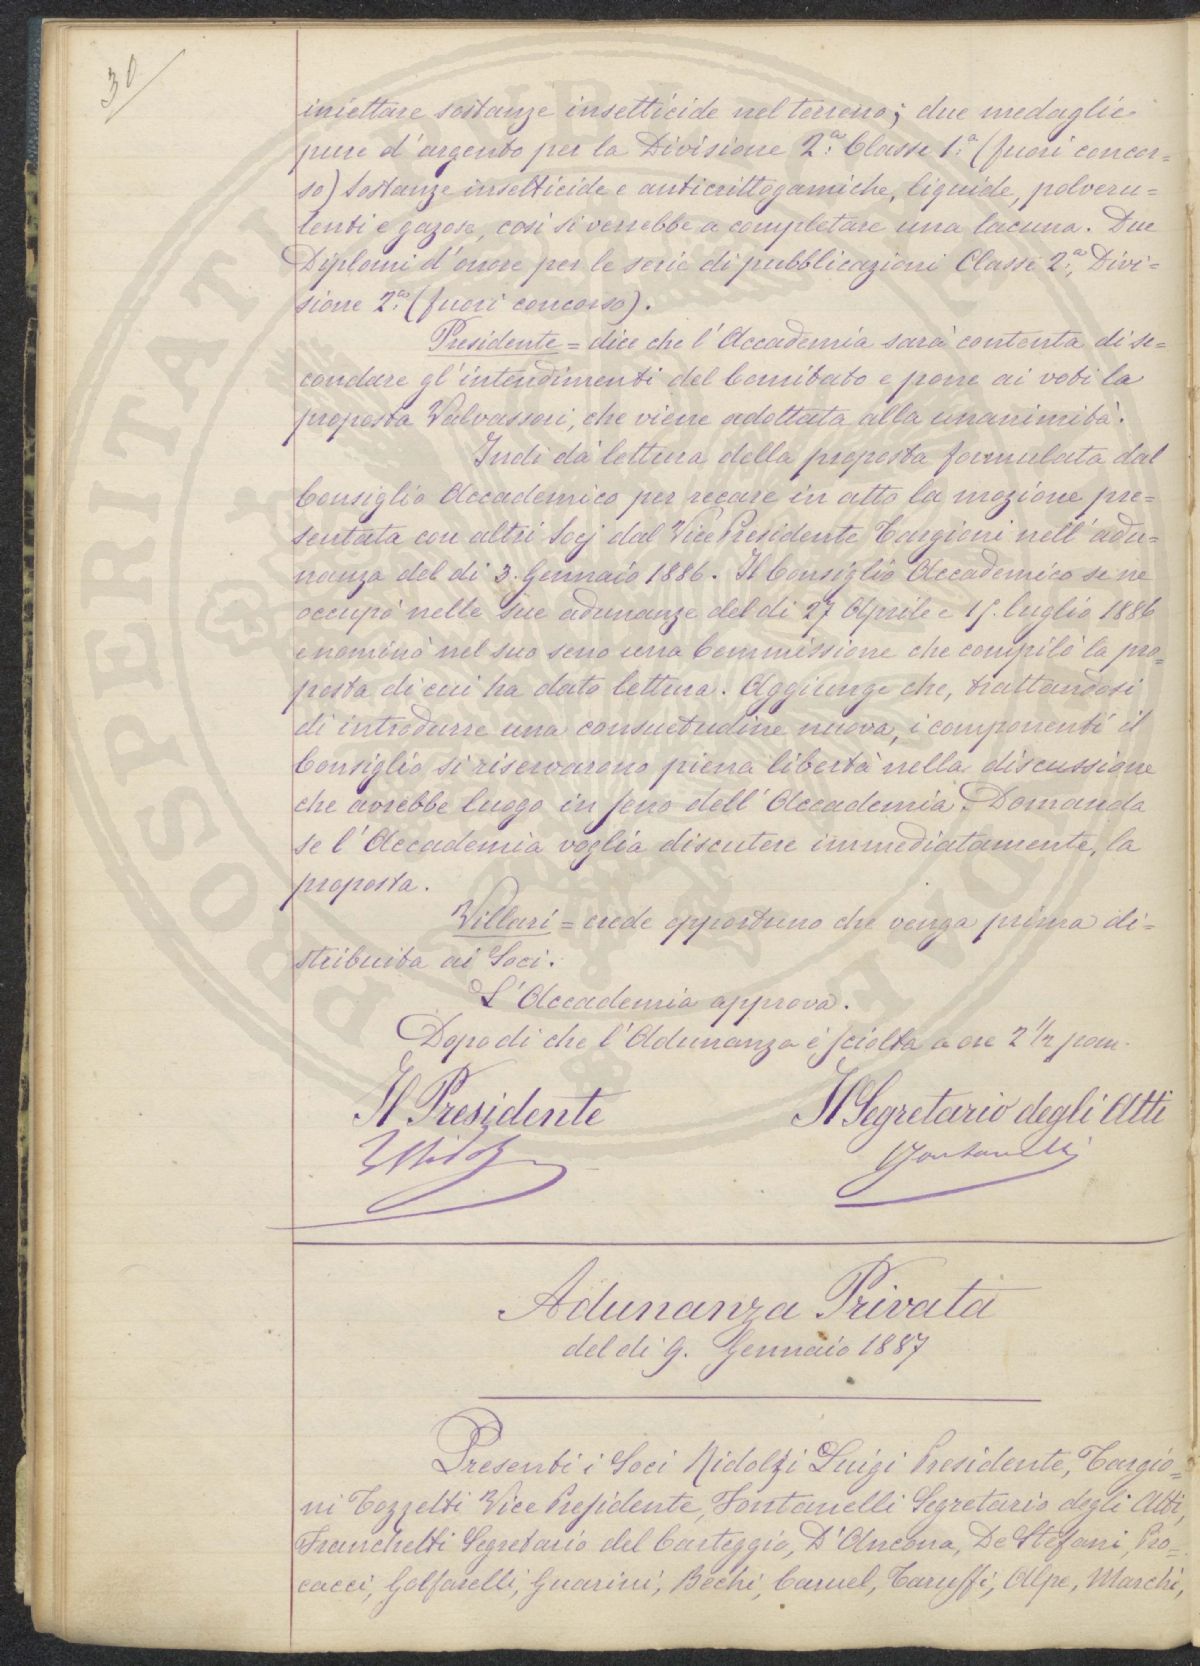 30
iniettare sostanze insetticide nel terreno; due medaglie
pure d'argento per la Divisione 2.a Classe 1.a (fuori concor=
so) Sostanze insetticide e anticrittogamiche, liquide, polveru=
lenti e gazose, così si verrebbe a completare una lacuna. Due
Diplomi d'onore per le serie di pubblicazioni Classe 2.a, Divi=
sione 2.a (fuori concorso).
Presidente = dice che l'Accademia sarà contenta di se=
condare gl'intendimenti del Comitato e pone ai voti la
proposta Valvassori, che viene adottata alla unanimità.
Indi dà lettura della proposta formulata dal
Consiglio Accademico per recare in atto la mozione pre=
sentata con altri Socj dal Vice Presidente Targioni nell'adu=
nanza del di 3. Gennaio 1886. Il Consiglio Accademico se ne
occupò nelle sue adunanze del di 27 Aprile e 15. Luglio 1886
e nominò nel suo seno una Commissione che compilò la pro=
posta di cui ha dato lettura. Aggiunge che, trattandosi
di introdurre una consuetudine nuova, i componenti il
Consiglio si riservarono piena libertà nella discussione
che avrebbe luogo in seno dell'Accademia. Domanda
se l'Accademia voglia discutere immediatamente, la
proposta.
Villari = crede opportuno che venga prima di=
stribuita ai Soci.
L'Accademia approva.
Dopo di che l'Adunanza è sciolta a ore 2 1/2 pom.
Il Presidente Il Segretario degli Atti
LRidolfi Fontanelli
Adunanza Privata
del di 9. Gennaio 1887
Presenti i Soci Ridolfi Luigi Presidente, Targio=
ni Tozzetti Vice Presidente, Fontanelli Segretario degli Atti,
Franchetti Segretario del Carteggio, D'Ancona, De Stefani, Pro=
cacci, Golfarelli, Guarini, Bechi, Caruel, Taruffi, Alpe, Marchi,
PROSPERITATI PUBLICAE AUGENDAE